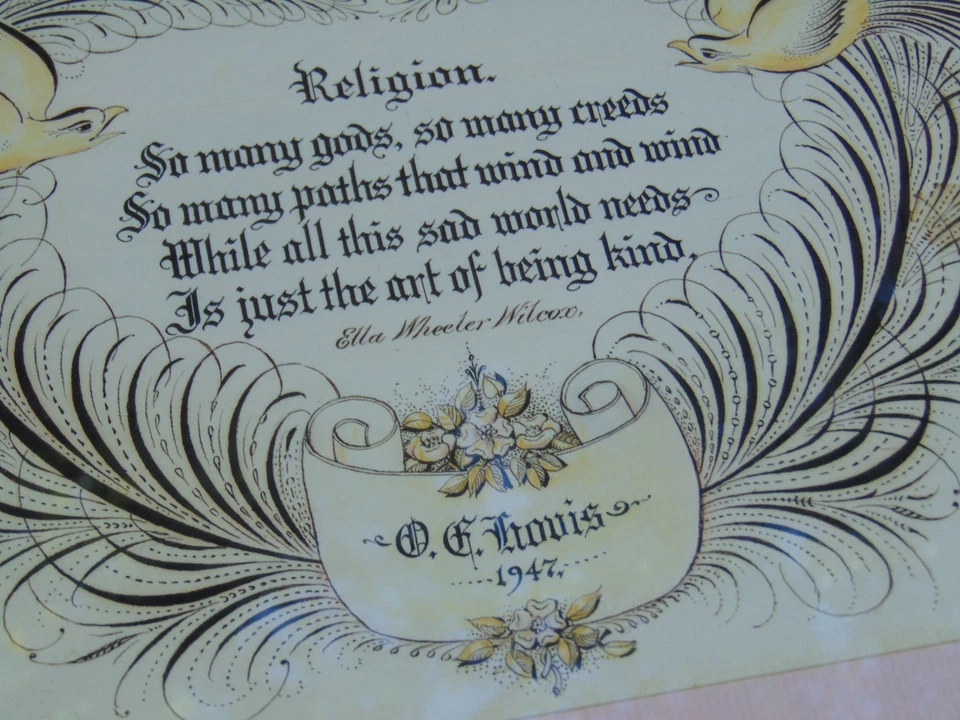 Religion.
So many gods, so many creeds
So many paths that wind and wind
While all this sad world needs
Is just the art of being kind.
Ella Wheeler Wilcox.
O. E. Hovis
1947.